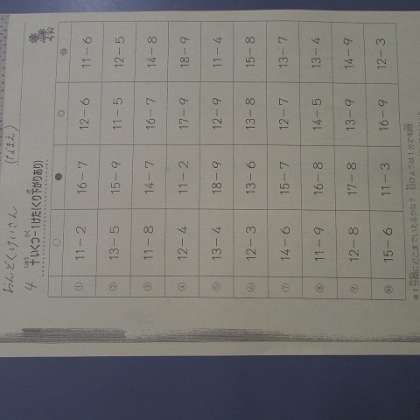 おんどくけいさん
4 十いくつ－1けた(くり下がりあり)
① 11－2 16－7 12－6 11－6
② 13－5 15－9 11－5 12－5
③ 11－8 14－7 16－7 14－8
④ 12－4 11－2 17－9 18－9
⑤ 13－4 18－9 12－9 11－4
⑥ 12－3 13－6 13－8 15－8
⑦ 14－6 15－7 12－7 13－7
⑧ 11－9 16－8 14－5 13－4
⑨ 12－8 17－8 13－9 14－9
⑩ 15－6 11－3 16－9 12－3